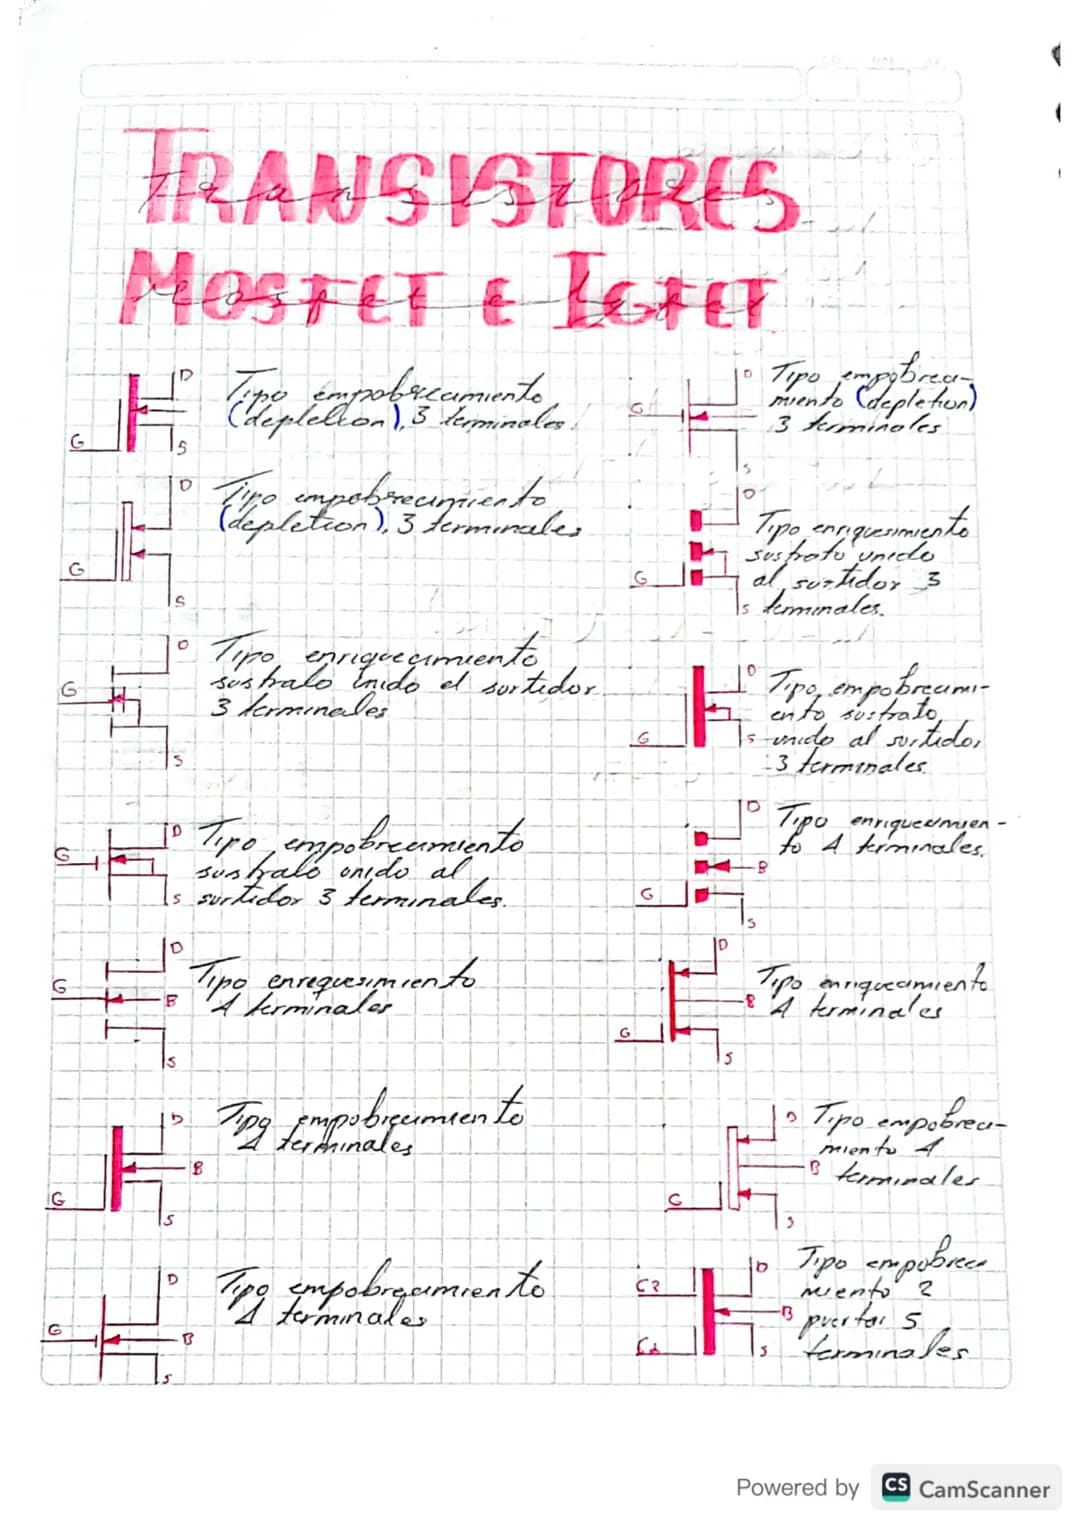 TRANSISTORES
Transistores
MOSFET E IGFET
Mosfet e Igfet
D
Tipo empobrecimiento
(depletion), 3 terminales.
G
S
D
Tipo empobreci-
miento (depletion)
3 terminales
G
S
D
Tipo empobrecimiento
(depletion), 3 terminales
G
S
D
Tipo enriquesimiento
sustrato unido
al surtidor 3
terminales.
G
S
D
Tipo enriquecimiento
sustrato unido el surtidor
3 terminales
G
S
D
Tipo empobrecimi-
ento sustrato
unido al surtidor
3 terminales
G
S
D
Tipo empobrecimiento
sustrato unido al
surtidor 3 terminales.
G
S
D
Tipo enriquesimien-
to 4 terminales.
B
G
S
D
Tipo enrequesimiento
4 terminales
G
B
S
D
Tipo enriquecimiento
4 terminales
B
G
S
D
Tipo empobrecimiento
4 terminales
B
G
S
D
Tipo empobreci-
miento 4
terminales
B
G
S
D
Tipo empobrecimiento
4 terminales
G
B
S
G2
D
Tipo empobreci
miento 2
puertas 5
terminales
B
G1
S
Powered by CS CamScanner